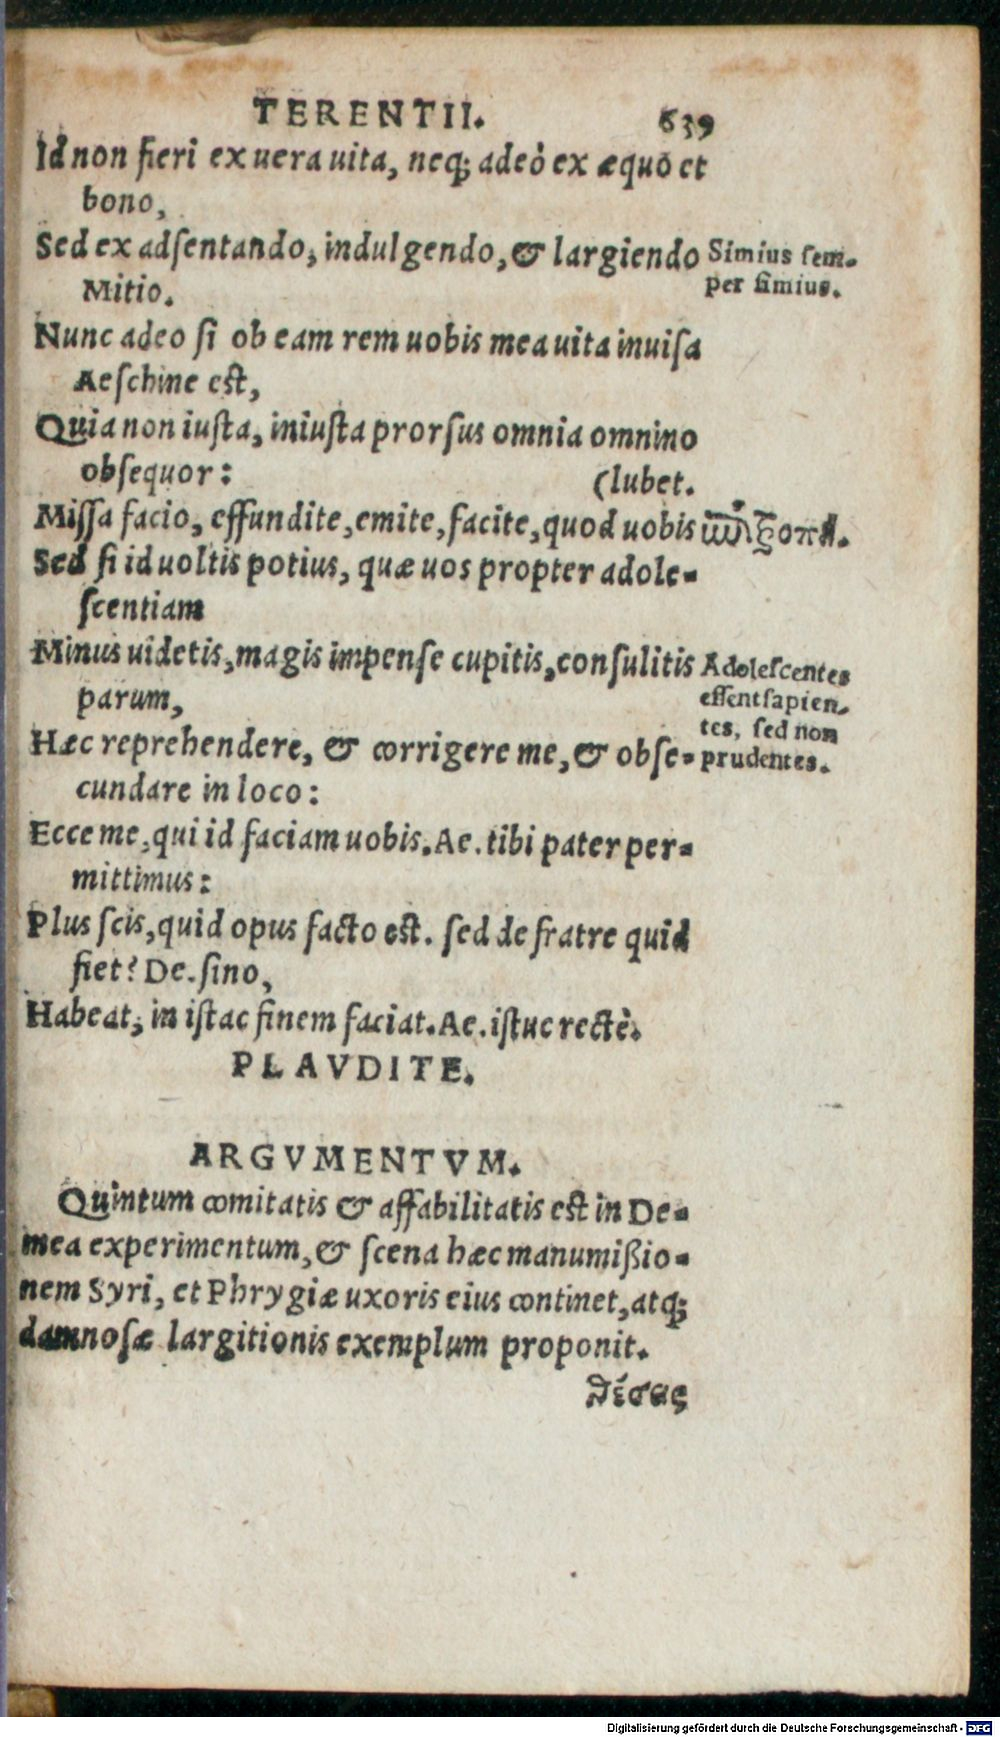 TERENTII. 639
Id non fieri ex uera uita, neq; adeò ex æquo et
bono,
Sed ex adsentando, indulgendo, & largiendo
Mitio.
Simius sem-
per simius.
Nunc adeo si ob eam rem uobis mea uita inuisa
Aeschine est,
Quia non iusta, iniusta prorsus omnia omnino
obsequor:
(lubet.
Missa facio, effundite, emite, facite, quod uobis
Sed si id uoltis potius, quæ uos propter adole-
scentiam
Minus uidetis, magis impense cupitis, consulitis
parum,
Adolescentes
essent sapien-
tes, sed non
prudentes.
Hæc reprehendere, & corrigere me, & obse-
cundare in loco:
Ecce me, qui id faciam uobis. Ae. tibi pater per-
mittimus:
Plus scis, quid opus facto est. sed de fratre quid
fiet? De. sino,
Habeat, in istac finem faciat. Ae. istuc rectè.
PLAVDITE.
ARGVMENTVM.
Quintum comitatis & affabilitatis est in De-
mea experimentum, & scena hæc manumißio-
nem Syri, et Phrygiæ uxoris eius continet, atq;
damnosæ largitionis exemplum proponit.
Digitalisierung gefördert durch die Deutsche Forschungsgemeinschaft - DFG